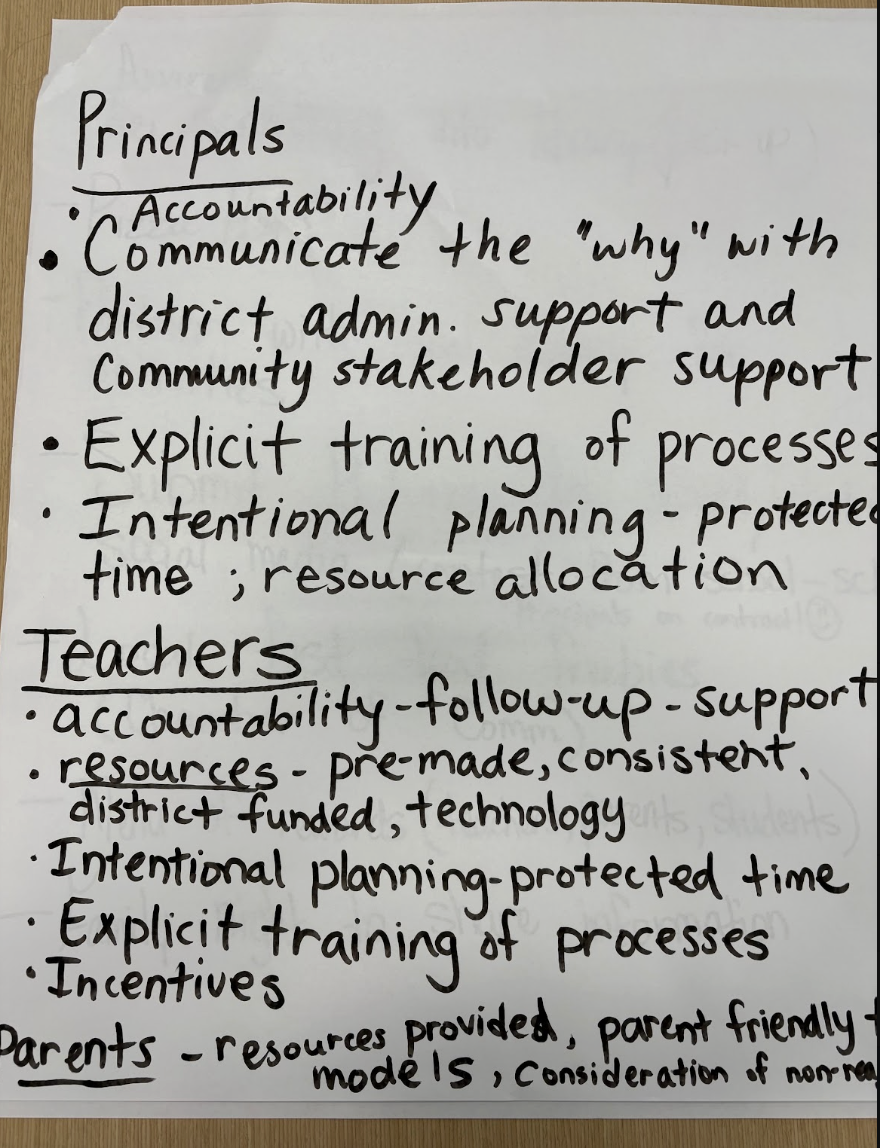 Principals
• Accountability
• Communicate the "why" with
district admin. support and
Community stakeholder support
• Explicit training of processes
• Intentional planning - protected
time ; resource allocation
Teachers
• accountability - follow-up - support
• resources - pre-made, consistent,
district funded, technology
• Intentional planning - protected time
• Explicit training of processes
• Incentives
Parents - resources provided, parent friendly
models, consideration of